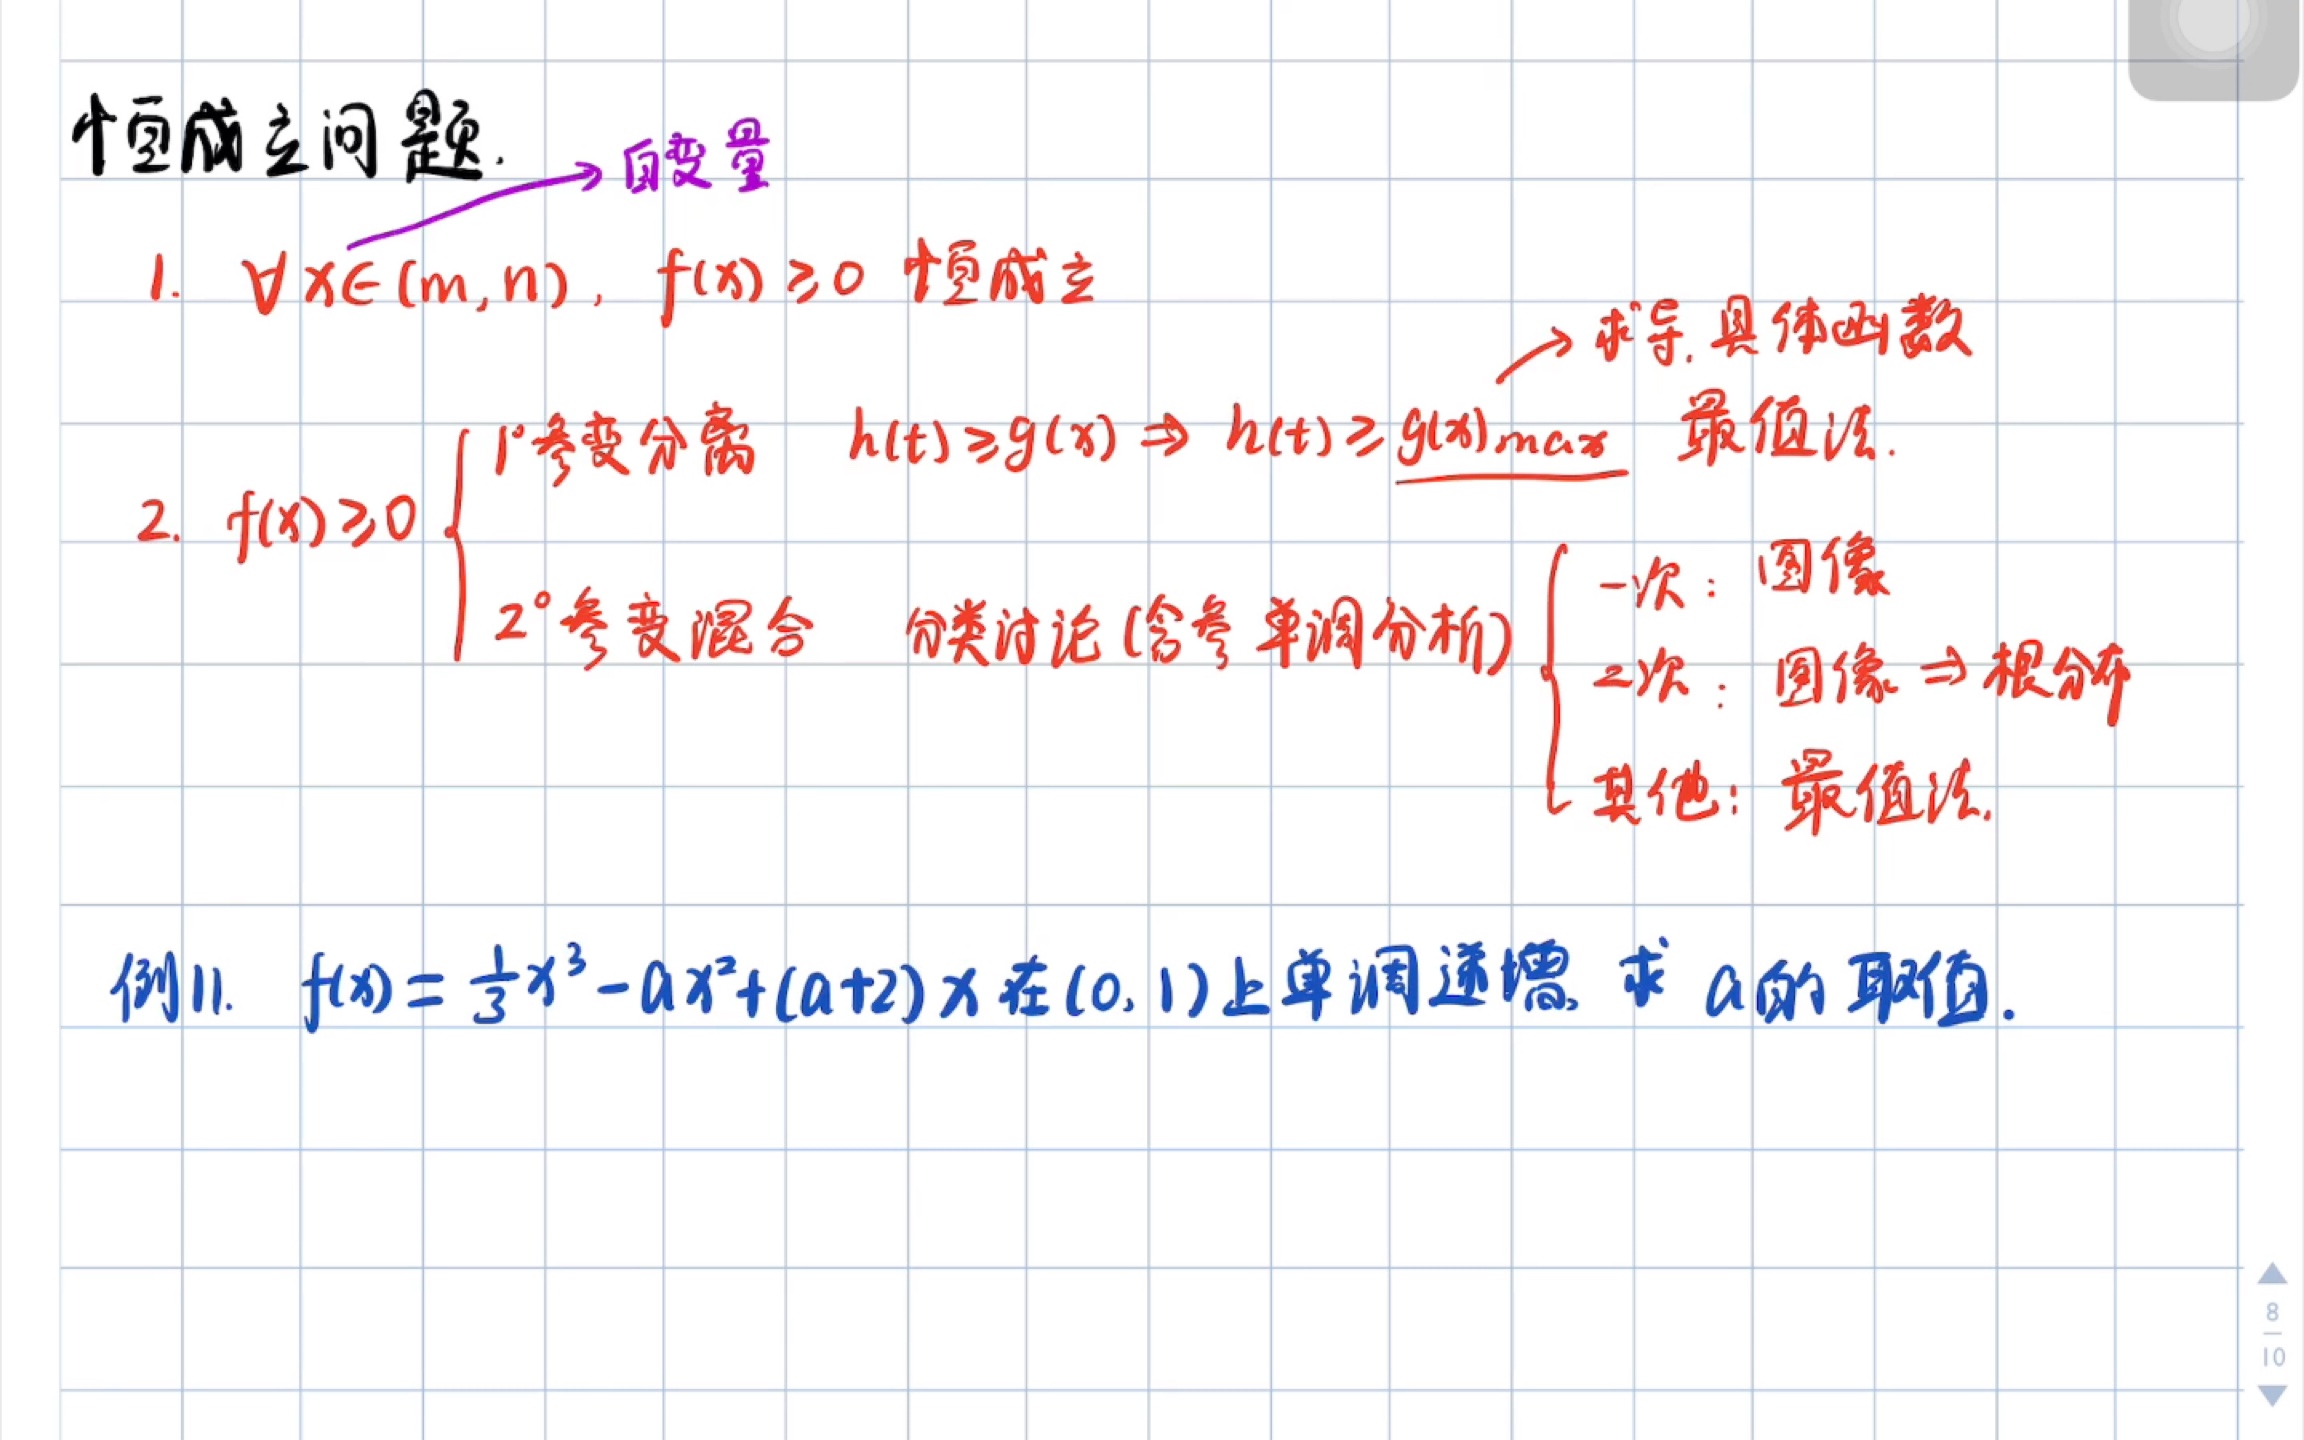 恒成立问题.
自变量
1. ∀x∈(m,n), f(x)≥0 恒成立
求导.具体函数
1°参变分离 h(t)≥g(x) ⇒ h(t)≥g(x)max 最值法.
2. f(x)≥0
2°参变混合 分类讨论(含参单调分析)
一次: 图像
二次: 图像 ⇒ 根分布
其他: 最值法.
例11. f(x)=1/3x³-ax²+(a+2)x在(0,1)上单调递增,求 a的取值.
8
10